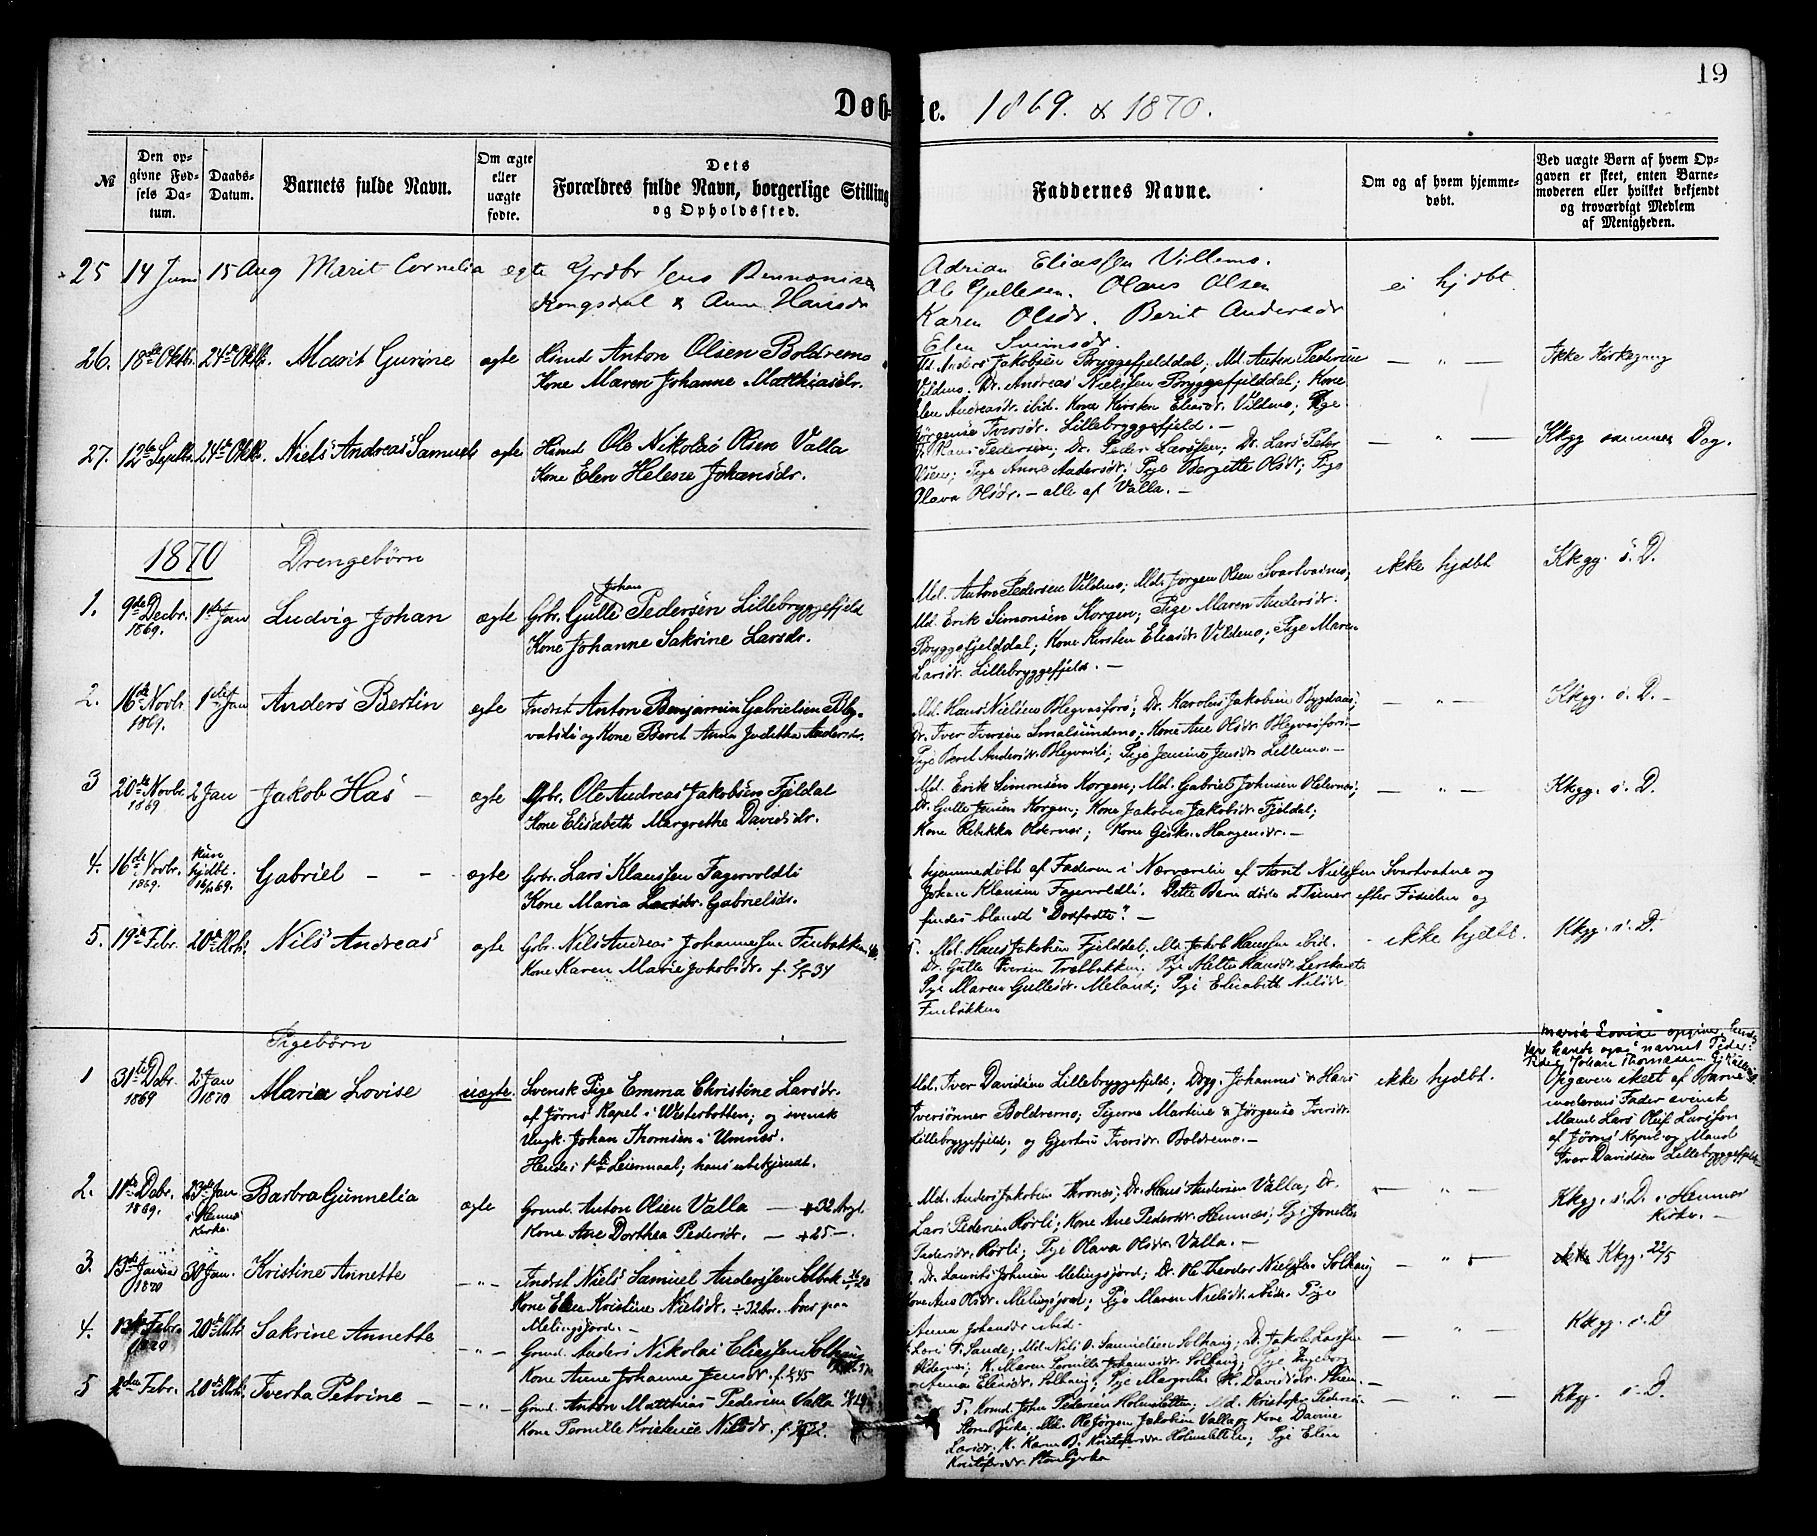 19
Døbte. 1869. & 1870.
№
Den opgivne Fødsels Datum.
Daabs-Datum.
Barnets fulde Navn.
Om ægte eller uægte fødte.
Dets
Forældres fulde Navn, borgerlige Stilling
og Opholdssted.
Faddernes Navne.
Om og af hvem hjemmedøbt.
Ved uægte Børn af hvem Opgaven er skeet, enten Barnemoderen eller hvilket bekjendt og troværdigt Medlem af Menigheden.
25 14 Juni 15 Aug Marit Cornelia ægte Grdbr Jens Bennonisen
Kongsdal & Anne Hansdr
Adrian Eliassen Villemo.
Ole Gullesen. Olaus Olsen
Karen Olsdr. Berit Andersdr
Elen Svensdr.
ei hjdbt.
26. 18de Oktbr. 24de Oktbr. Marit Gurine ægte Husmd Anton Olsen Boldremo
Kone Maren Johanne Matthiasdr.
Md. Anders Jakobsen Bryggefjelddal; Md. Anton Pedersen
Vildmo. Dr. Andreas Nielssen Bryggefjelddal; Kone
Elen Andreasdr. ibid. Kone Kirsten Eliasdr. Vildmo; Pige
Jørgense Iversdr. Lillebryggefjeld. —
— " —
Ikke Kirkegang
27. 12te Septbr. 24de Oktbr. Niels Andreas Samuel ægte Husmd Ole Nikolai Olsen Valla
Kone Elen Helene Johansdr.
Hans Pedersen; Dr. Peder Larssen; Dr. Lars Peter
Olsen; Pige Anne Andersdr; Pige Bergitte Olsdr; Pige
Olava Olsdr. — alle af Valla. —
— " —
Kkgg samme Dag.
1870 Drengebørn
1. 9de Decbr. 1869. 1ste Jan Ludvig Johan ægte Grbr. Gulle Johan Pedersen Lillebryggefjeld
Kone Johanne Sakrine Larsdr.
Md. Anton Pedersen Vildmo; Md. Jørgen Olsen Svartvadmo;
Md. Erik Simonsen Korgen; Pige Maren Andersdr.
Bryggefjelddal; Kone Kirsten Eliasdr. Vildmo; Pige Maren
Larsdr. Lillebryggefjeld. —
ikke hjdbt
Kkgg. s. D.
2. 16de Novbr 1869. 1ste Jan Anders Bertin ægte Indrst Anton Benjamin Gabrielsen
og Kone Beret Anna Juditha Andersdr.
Md. Hans Nielsen
Dr. Iver Iversen Smalsundmo; Kone Ane Olsdr.
Pige Beret Andersdr. Pige Jensine Jensdr. Lillemo. —
— " —
Kkgg. s. D. —
3 20de Novbr. 1869 2 Jan Jakob Has — ægte Grbr. Ole Andreas Jakobsen Fjeldal
Kone Elisabeth Margrethe Davidsdr.
Md. Erik Simonsen Korgen; Md. Gabriel Johnsen Oldernes;
Dr. Gulle Jensen Korgen; Kone Jakobea Jakobsdr. Fjeldal;
Kone Rebekka Oldernes; Kone Haagensdr. —
— " —
Kkgg. s. D.
4. 16de Novbr. 1869. kun hjdbt. 16/11 69. Gabriel — — ægte Grbr. Lars Klaussen Fagervoldli
Kone Maria Larsdr. Gabrielsdr.
hjemmedøbt af Faderen i Nærværelse af Arnt Nielssen Svartvadne og
Johan Klausen Fagervoldli. Dette Barn døde 2 Timer efter Fødselen og
findes blandt "Dødfødte". —
5. 19de Febr. 20de Mts. Nils Andreas ægte Grbr. Nils Andreas Johannessen Finbakken
Kone Karen Marie Jakobsdr. f. 34
5. Md. Hans Jakobsen Fjelddal; Md. Jakob Hanssen ibid.
Dr. Gulle Iversen Træbakken; Pige Mette Hansdr.
Pige Maren Gullesdr. Meland; Pige Elisabeth Nilsdr.
Finbakken
ikke hjdbt.
Kkgg. s. D.
Pigebørn
1 31te Dcbr. 1869 2 Jan 1870 Maria Lovise uægte. Svensk Pige Emma Christine Larsdr.
af Jörns Kapel i Westerbotten; og svensk
Ungk. Johan Thomsen i Umnæs.
Hendes 1ste Leiermaal; hans ubekjendt.
Md. Iver Davidsen Lillebryggefjeld; Dgg. Johannes & Hans
Iversønner Boldremo; Pigerne Martine & Jørgense Iversdr.
Lillebryggefjeld; og Gjertrue Iversdr. Boldremo. —
ikke hjdbt.
Maria Lovise opgiver,
Opgaven skeet af Barne
moderens Fader svensk
Mand Lars Oluf Larssen
af Jörns Kapel og Mand
Iver Davidsen Lillebryggefjeld
2. 11te Dcbr. 1869. 23de Jan i Hemnes Kirke. Barbra Gunnelia ægte Grmd. Anton Olsen Valla — 32 Aar.
Kone Ane Dorthea Pedersdr. — 25 —.
Md. Anders Jakobsen Dr. Hans Andersen Valla; Dr.
Lars Pedersen Rørli; Kone Ane Pedersdr. Hemnes; Pige
Pedersdr. Rørli; Pige Olava Olsdr. Valla. —
— " —
Kkgg. s. D. i Hemnes
Kirke. —
3. 13de Januar 1870 30 Jan. Kristine Annette — " — Indrst. Niels Samuel Anderssen
Kone Elen Kristine Nielsdr. 32 br. paa
Melingsfjord. —
Dr. Laurits Johnsen Melingsfjord; Dr. Ole Theodor Nielsen Solhaug
Kone Ane Olsdr. Melingsfjord; Pige Maren Nielsdr. ibid. Pige
Anna Johansdr ibid.
— " —
Kkgg. 22/5
4. 13de Febr. 1870 20de Mts Sakrine Annette — " — Grmd. Anders Nikolai Eliessen Solhaug
Kone Anne Johanne Jensdr. f. 45
Lars P. Sande; Md. Nils O. Samuelsen Solhaug; D. Jakob Larssen
Oldernes; K. Maren Pernille Johannesdr. Solhaug; Pige Ingeborg
Anna Eliesdr. Solhaug; Pige Margrethe Davidsdr.
— " —
Kkgg. s. D
5 2den Febr. 20de Mts. Iverta Petrine — — " — Grmd. Anton Matthias Pedersen Valla
Kone Pernille Kristense Nilsdr. f. 32.
5. John Pedersen Holmsletten; Md. Kristofer Pedersen
Md. Ole Jørgen Jakobsen Valla; Kone Davine
Larsdr. K. Karen B. Kristofersdr. Holmsletten; Pige Elen
Kristofersdr.
— " —
Kkgg. s. D.